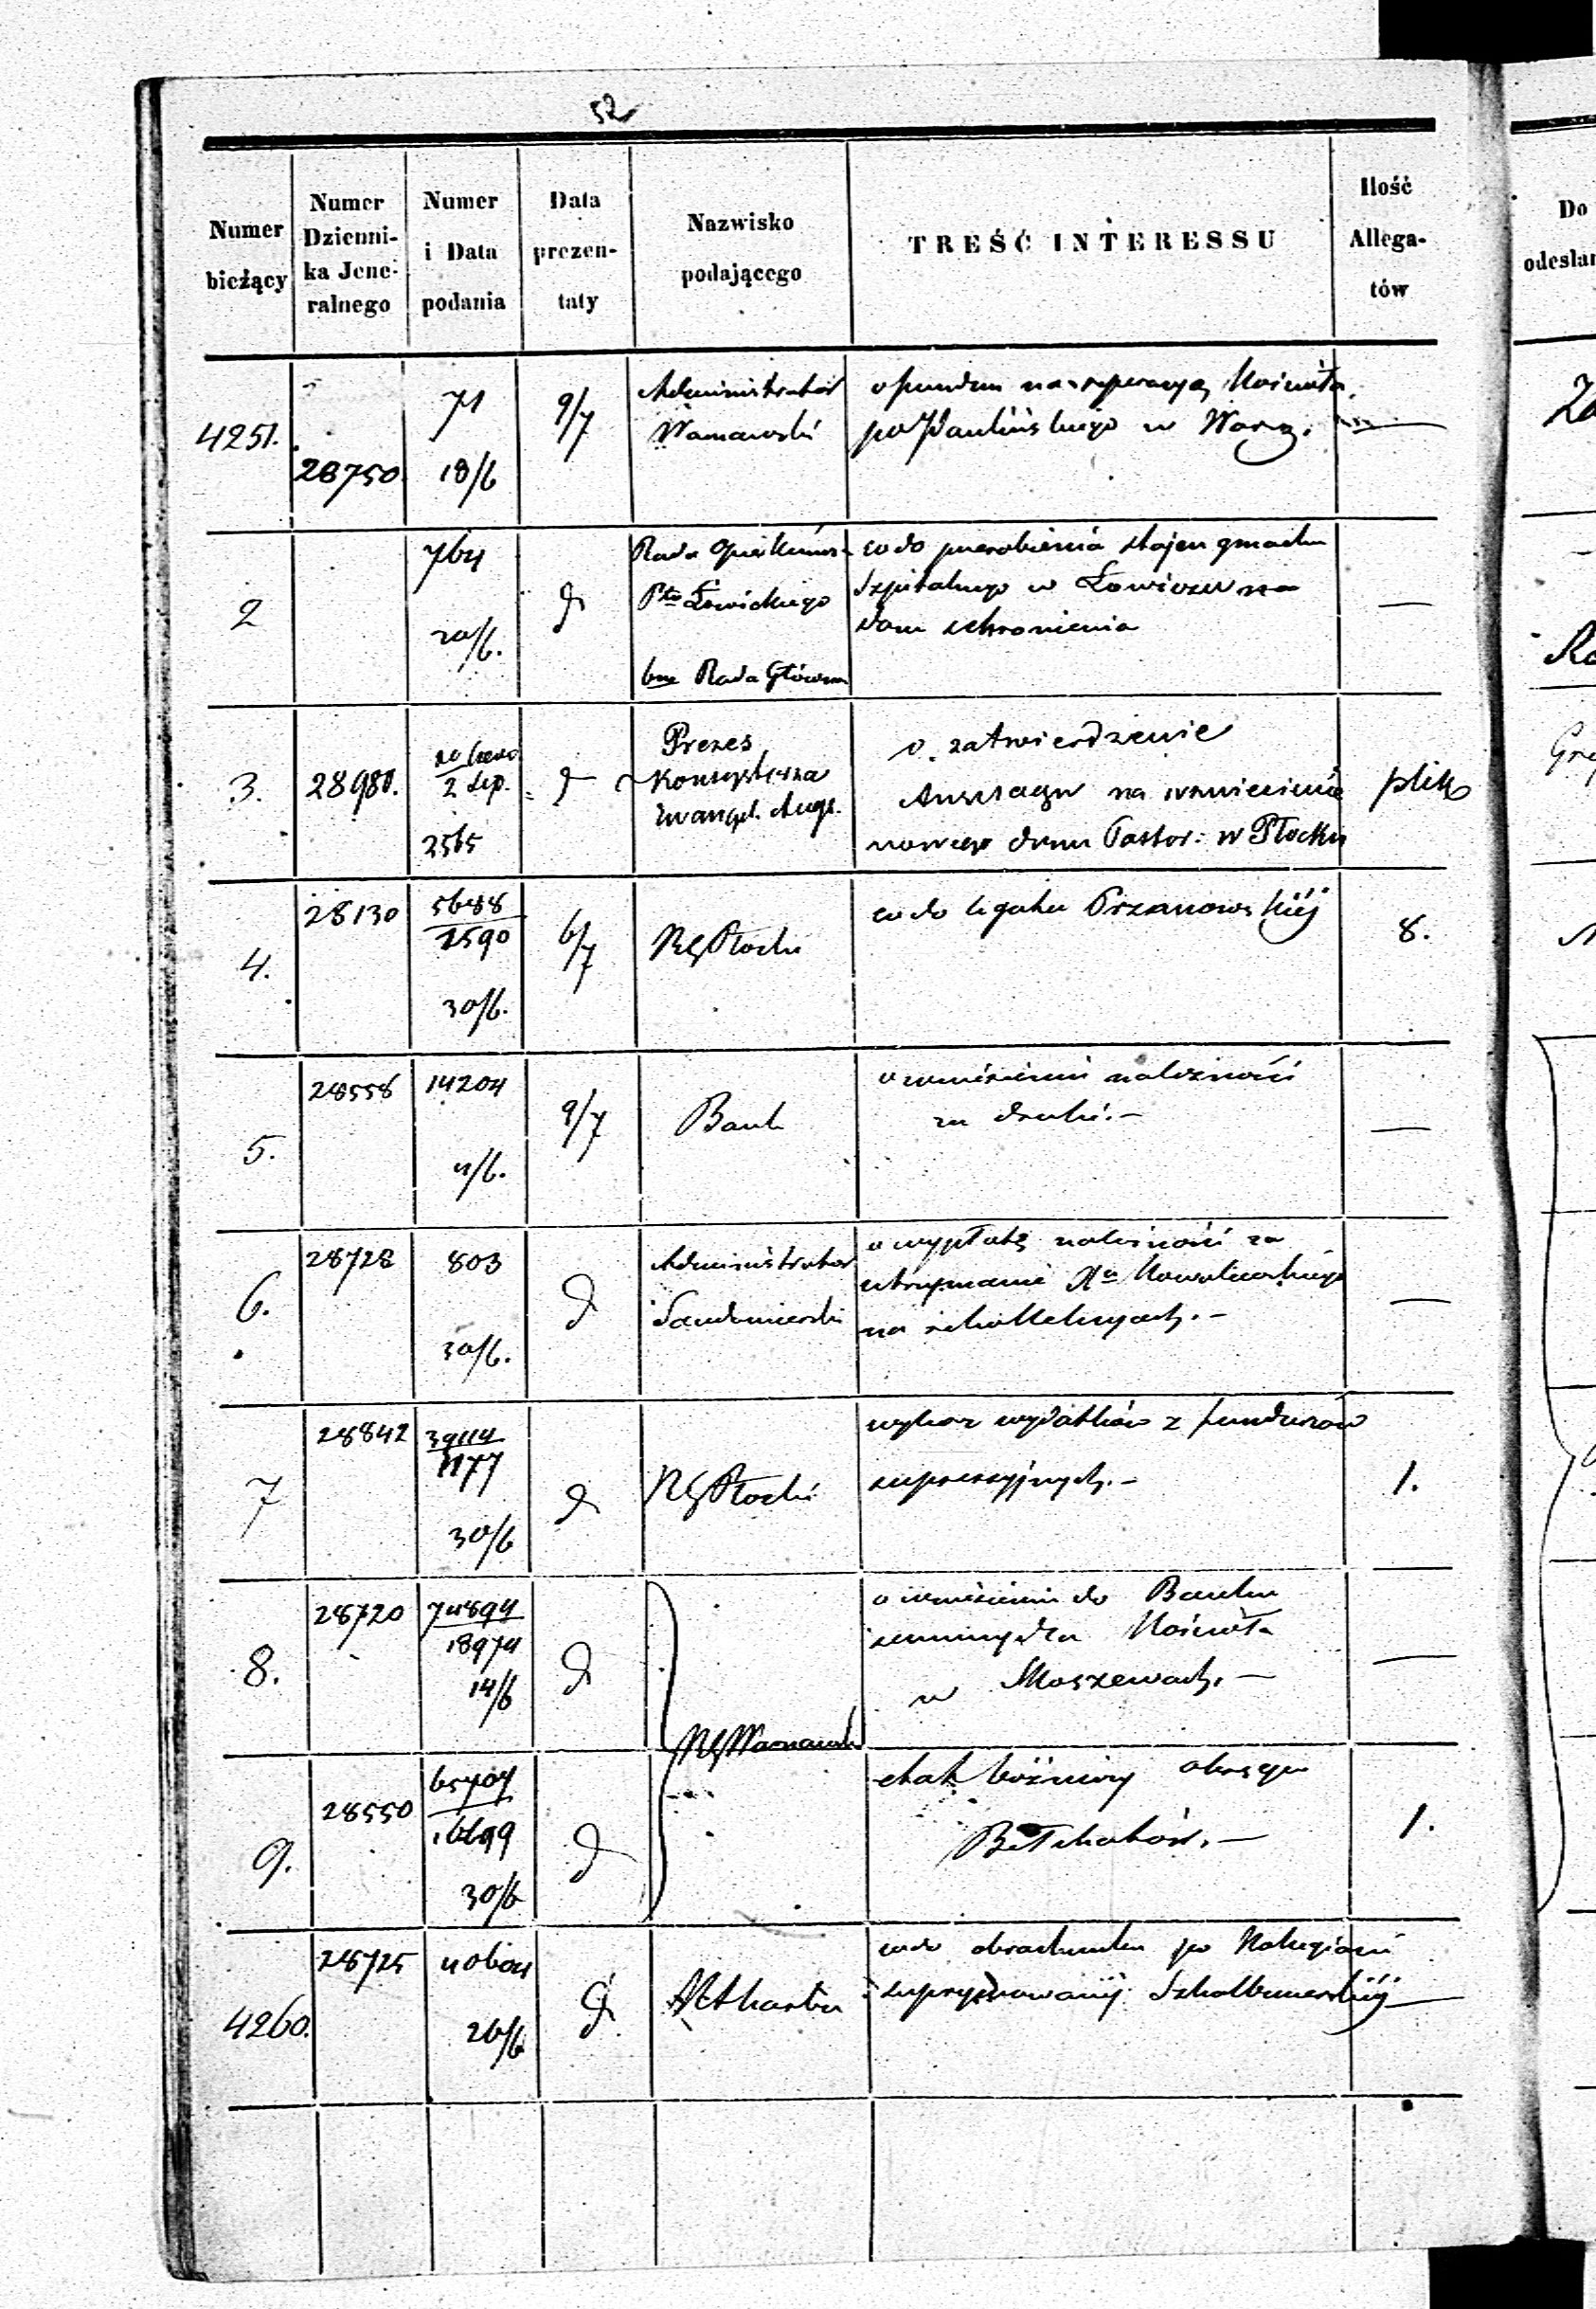 52
Numer bieżący
Numer Dzienni-ka Jene-ralnego
Numer i Data podania
Data prezen-taty
Nazwisko podającego
TREŚĆ INTERESSU
Ilość Allega-tów
Do
odesłan
4251.
28750
71
18/6
9/7
Administrator
Warszawski
o fundusz na reperacyą Kościoła
po Paulińskiego w Warsz.
—
2
764
20/6.
Rada Opiekuńcza
Ptu Łowickiego
Rada Główna
co do przerobienia stajen gmachu
Szpitalnego w Łowiczu na
dom schronienia
—
3.
28980.
2565
Prezes
Konsystorza
Ewangel. Augs.
o zatwierdzenie
Anszlagu na wzniesienie
nowego domu Pastor: w Płocku
plik
4.
28130
5688
2590
30/6.
6/7
RG Płocki
co do legatu Przanowskiéj
8.
5.
28558
14204
11/6.
9/7
Bank
o wniesienie należności
za druki.—
—
6.
28728
803
30/6.
Administrator
Sandomierski
o wypłatę należności za
utrzymanie Xa Kowalewskiego
na rekollekcyach.—
—
7
28842
39114
1177
30/6
RG Płocki
wykaz wydatków z funduszów
supressyjnych.—
1.
8.
28720
74894
18974
14/6
RG Warszawski
o wniesieniu do Banku
summy dla Kościoła
w Moszewach.—
—
9.
28550
65704
16699
30/6
etat bóżniczy okręgu
Bełchatów.—
1.
4260.
28725
40604
26/6
co do obrachunku po Kolegiacie
supprymowanéj Szkalbmierskiéj
—